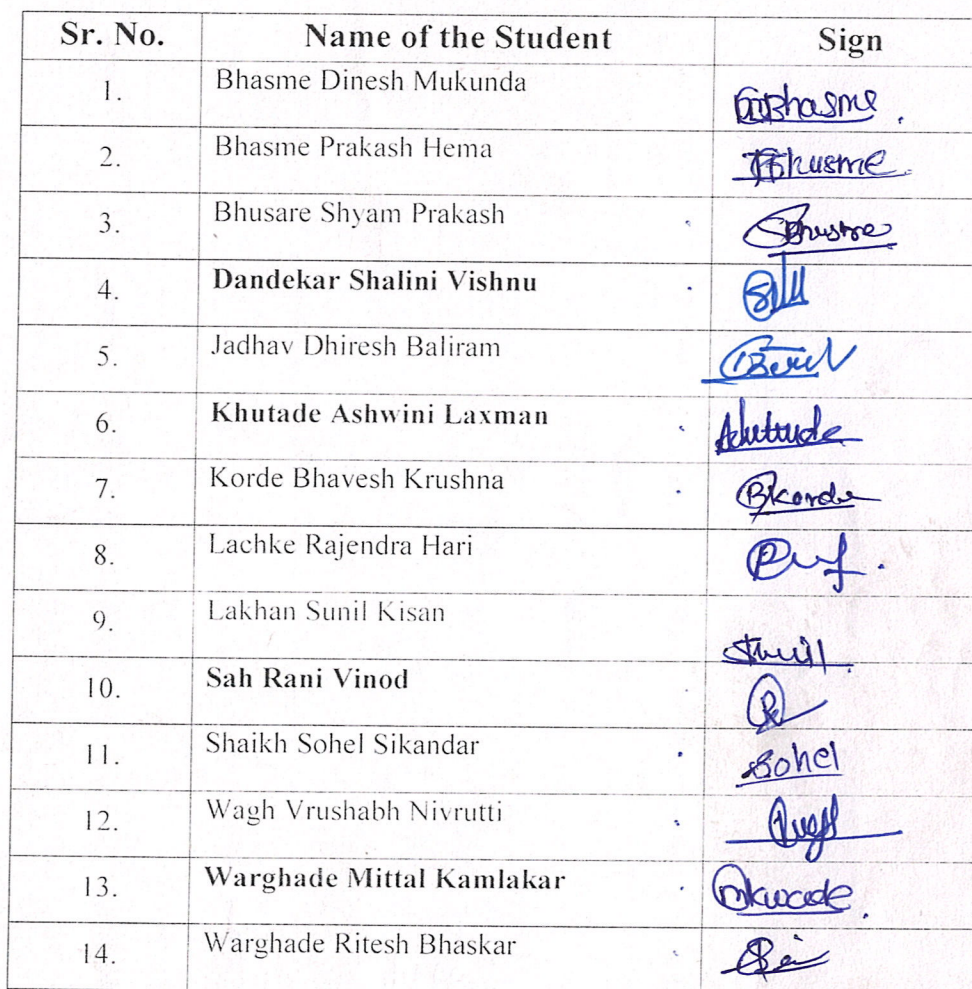 Sr. No. Name of the Student Sign
1. Bhasme Dinesh Mukunda
2. Bhasme Prakash Hema
3. Bhusare Shyam Prakash
4. Dandekar Shalini Vishnu
5. Jadhav Dhiresh Baliram
6. Khutade Ashwini Laxman
7. Korde Bhavesh Krushna BKorde
8. Lachke Rajendra Hari
9. Lakhan Sunil Kisan
10. Sah Rani Vinod
11. Shaikh Sohel Sikandar Sohel
12. Wagh Vrushabh Nivrutti
13. Warghade Mittal Kamlakar
14. Warghade Ritesh Bhaskar